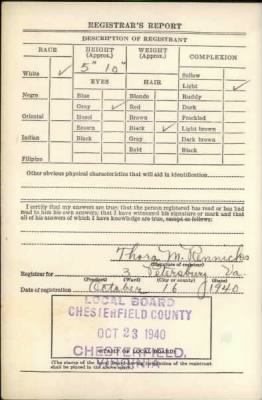 REGISTRAR'S REPORT
DESCRIPTION OF REGISTRANT
RACE HEIGHT (Approx.) WEIGHT (Approx.) COMPLEXION
5" 10" Sallow
White ✓ Light ✓
EYES HAIR Ruddy
Negro Blue Blonde Dark
Gray ✓ Red Freckled
Oriental Hazel Brown Light brown
Brown Black ✓ Dark brown
Indian Black Gray Black
Bald
Filipino
Other obvious physical characteristics that will aid in identification
I certify that my answers are true; that the person registered has read or has had
read to him his own answers; that I have witnessed his signature or mark and that
all of his answers of which I have knowledge are true, except as follows:
Thora M. Rennicks
(Signature of registrar)
Registrar for 3 Petersburg Va.
(Precinct) (Ward) (City or county) (State)
Date of registration October 16 1940
LOCAL BOARD
CHESTERFIELD COUNTY
OCT 23 1940
CHESTERFIELD,
VIRGINIA
(STAMP OF LOCAL BOARD)
(The stamp of the Local Board having jurisdiction of the registrant
shall be placed in the above space.)